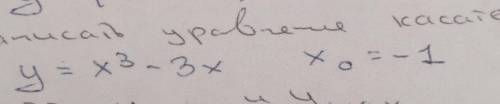 аписать уравнение касате
y = x³ - 3x x₀ = -1